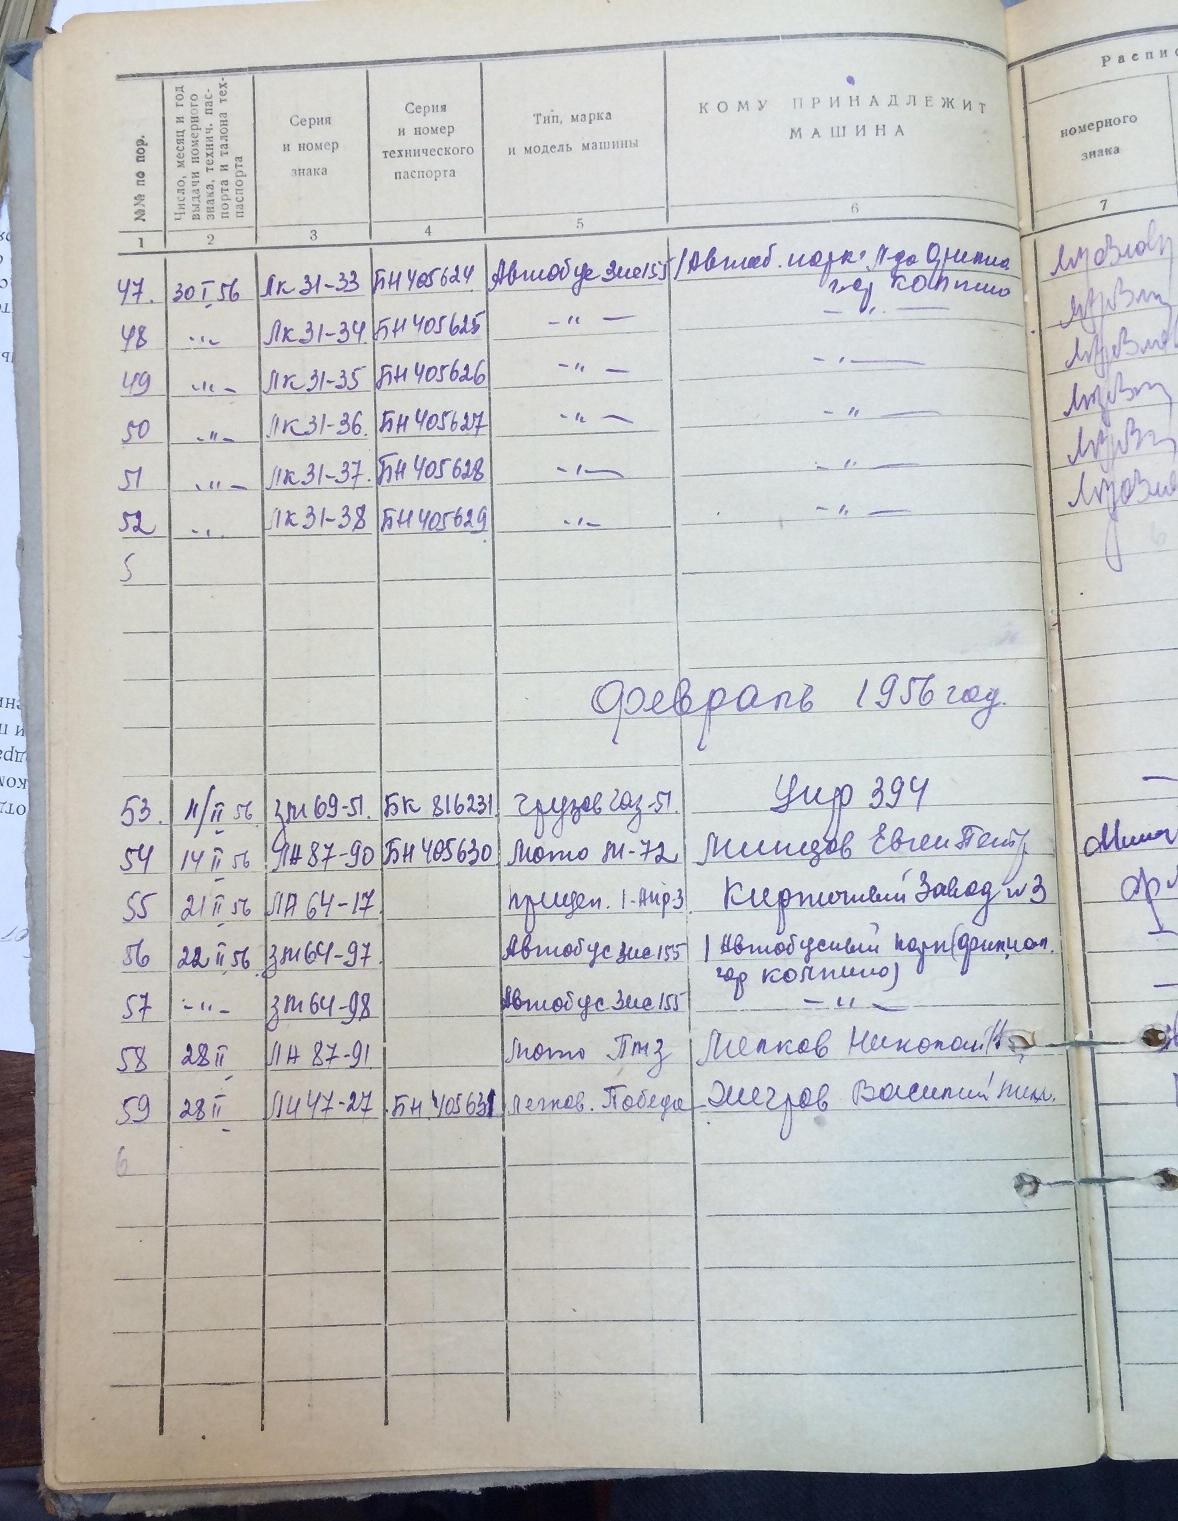 Распис
№№ по пор.
Число, месяц и год
выдачи номерного
знака, технич. пас-
порта и талона тех-
паспорта
Серия
и номер
знака
Серия
и номер
технического
паспорта
Тип, марка
и модель машины
КОМУ ПРИНАДЛЕЖИТ
МАШИНА
номерного
знака
1 2 3 4 5 6 7
47. 30 I 56 Лк 31-33 БН 405624 Автобус Зис 155 1 Автоб. парк
гор Колпино
48 -"- Лк 31-34 БН 405625 -"- -"-
49 -"- Лк 31-35 БН 405626 -"- -"-
50 -"- Лк 31-36 БН 405627 -"- -"-
51 -"- Лк 31-37 БН 405628 -"- -"-
52 -"- Лк 31-38 БН 405629 -"- -"-
5
Февраль 1956 год.
53. 11/II 56 Эт 69-51 БК 816231 грузов Газ-51. 394
54 14 II 56 ЛА 87-90 БН 405630 Мото М-72 Евген Петр
55 21 II 56 ЛА 64-17 прицеп. 1-Апр3 Кирпичный Завод №3
56 22 II 56 Эт 64-97 Автобус Зис 155 1 Автобусный парк (филиал.
гор Колпино)
57 -"- Эт 64-98 Автобус Зис 155 -"-
58 28 II ЛА 87-91 Мото ПМЗ Мелков Николай
59 28 II ЛИ 47-27 БН 405631 Легков. Победа Василий
6